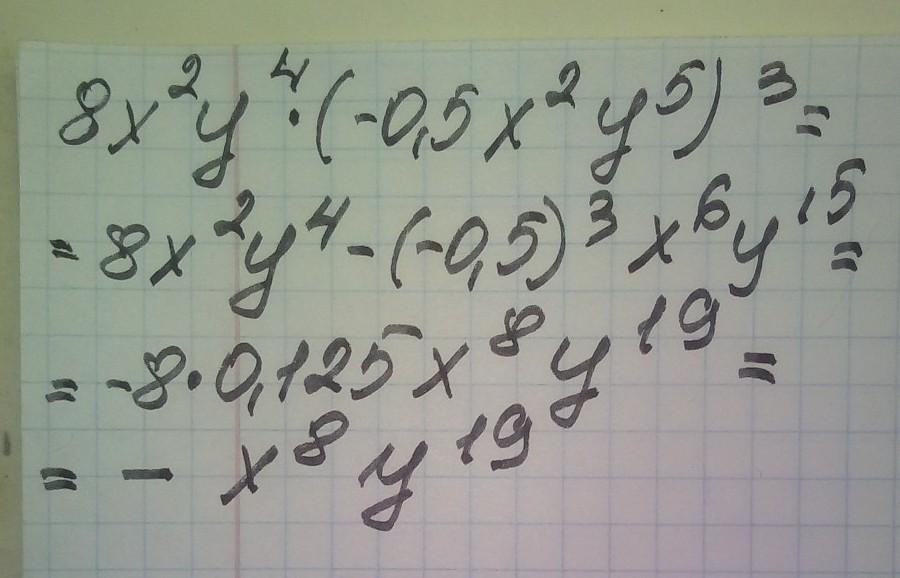 8x²y⁴·(-0,5x²y⁵)³=
=8x²y⁴-(-0,5)³x⁶y¹⁵=
=-8·0,125x⁸y¹⁹=
=-x⁸y¹⁹